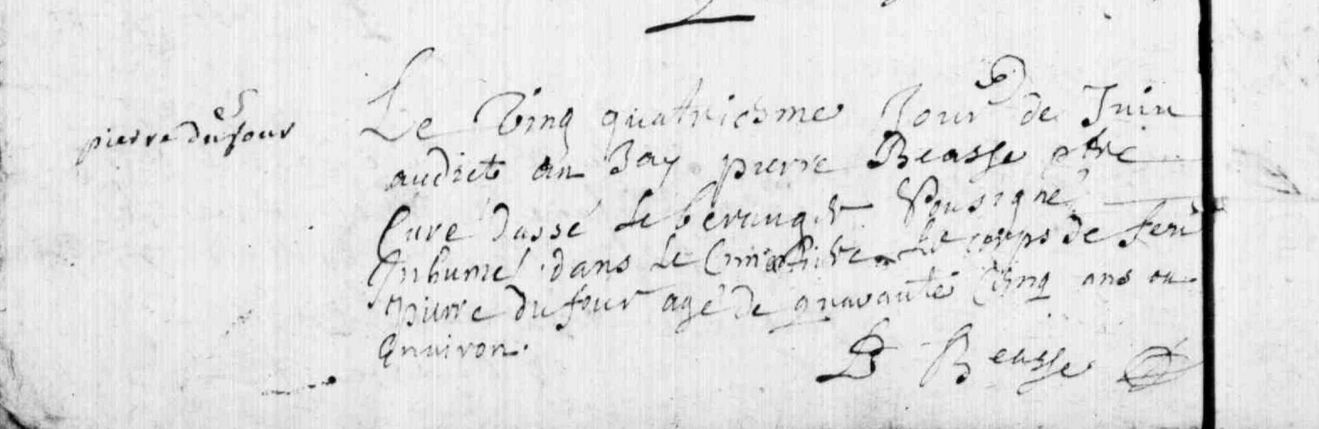 pierre du four
Le Vinq quatriesme Jour de Juin
audict an Jay pierre Beasse ptre
Curé dassé le berangér Sousigné
Inhumé dans le Cimetiere Le corps de feu
pierre du four agé de quarante Cinq ans ou
Environ.
P Beasse